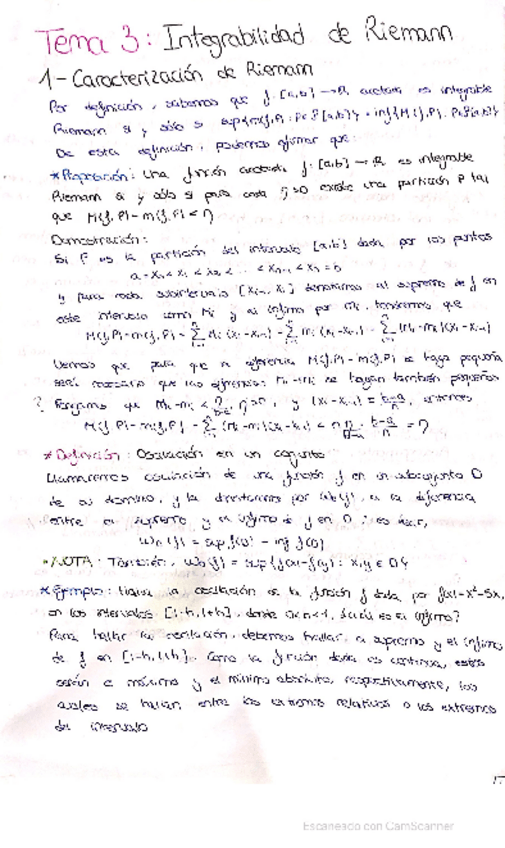 Tema 3: Integrabilidad de Riemann
1- Caracterización de Riemann
Por definición, sabemos que f: [a,b] → R acotada es integrable
Riemann si y sólo si sup{m(f,P): P∈P[a,b]} = inf{M(f,P): P∈P[a,b]}
De esta definición, podemos afirmar que:
*Proposición: Una función acotada f: [a,b] → R es integrable
Riemann si y sólo si para cada η>0 existe una partición P tal
que M(f,P) - m(f,P) < η
Demostración:
Si P es la partición del intervalo [a,b] dada por los puntos
a = x₀ < x₁ < x₂ < ... < xₙ₋₁ < xₙ = b
y para cada subintervalo [xᵢ₋₁, xᵢ] denotamos al supremo de f en
este intervalo como Mᵢ y al ínfimo por mᵢ, tendremos que
M(f,P) - m(f,P) = Σ Mᵢ (xᵢ - xᵢ₋₁) - Σ mᵢ (xᵢ - xᵢ₋₁) = Σ (Mᵢ - mᵢ)(xᵢ - xᵢ₋₁)
Vemos que para que la diferencia M(f,P) - m(f,P) se haga pequeña
será necesario que las diferencias Mᵢ - mᵢ se hagan también pequeñas
? Pongamos que Mᵢ - mᵢ < η/b-a, η>0, y (xᵢ - xᵢ₋₁) = b-a/n, entonces
M(f,P) - m(f,P) = Σ (Mᵢ - mᵢ)(xᵢ - xᵢ₋₁) < n η/b-a · b-a/n = η
*Definición: Oscilación en un conjunto
Llamaremos oscilación de una función f en un subconjunto D
de su dominio, y la denotaremos por ω_D(f), a la diferencia
entre el supremo y el ínfimo de f en D, es decir,
ω_D(f) = sup f(D) - inf f(D)
*NOTA: También, ω_D(f) = sup{f(x) - f(y): x,y ∈ D}
*Ejemplo: Halla la oscilación de la función f dada por f(x) = x² - 5x,
en los intervalos [1-h, 1+h], donde 0<h<1, ¿cuál es su ínfimo?
Para hallar la oscilación, debemos hallar el supremo y el ínfimo
de f en [1-h, 1+h]. Como la función dada es continua, estos
serán el máximo y el mínimo absoluto, respectivamente, los
cuales se hallan entre los extremos relativos o los extremos
del intervalo
Escaneado con CamScanner